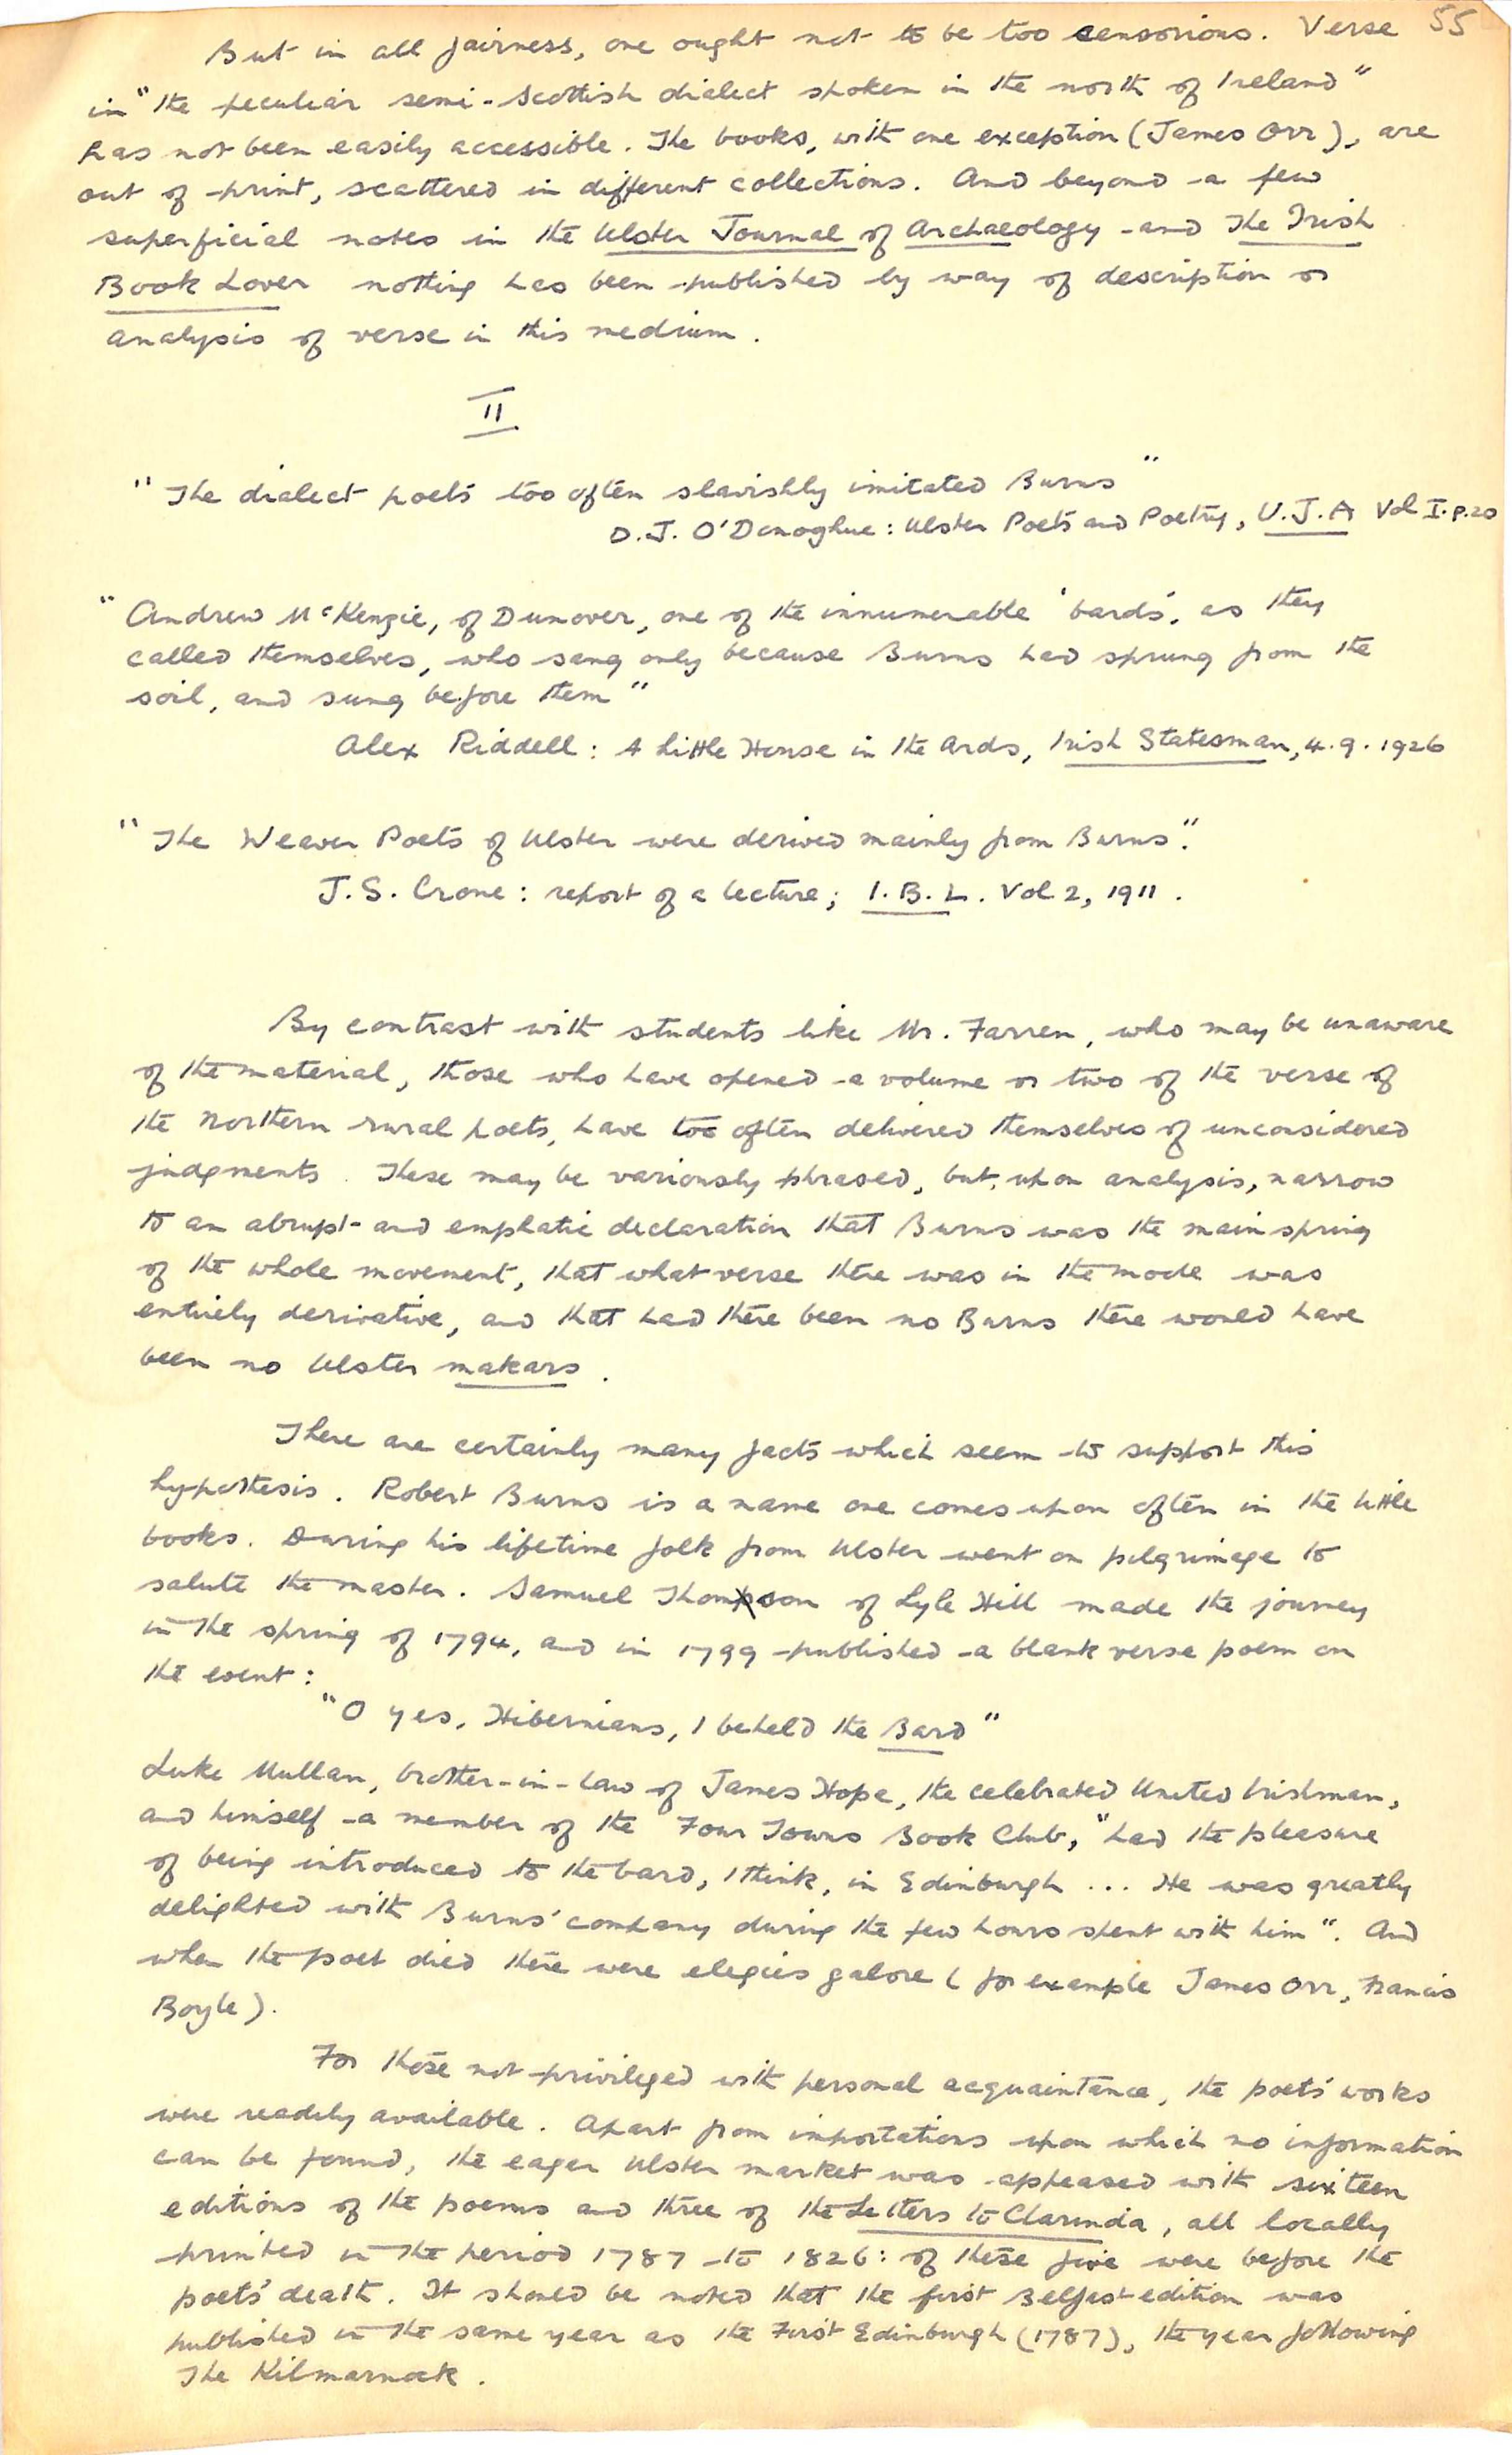 55
But in all fairness, one ought not to be too censorious. Verse
in "the peculiar semi-Scottish dialect spoken in the north of Ireland"
has not been easily accessible. The books, with one exception (James Orr), are
out of print, scattered in different collections. And beyond a few
superficial notes in the Ulster Journal of Archaeology and The Irish
Book Lover nothing has been published by way of description or
analysis of verse in this medium.
II
"The dialect poets too often slavishly imitated Burns"
D.J. O'Donoghue: Ulster Poets and Poetry, U.J.A Vol I. p.20
"Andrew McKenzie, of Dunover, one of the innumerable 'bards', as they
called themselves, who sang only because Burns had sprung from the
soil, and sung before them"
Alex Riddell: A Little House in the Ards, Irish Statesman, 4.9.1926
"The Weaver Poets of Ulster were derived mainly from Burns".
J.S. Crone: report of a lecture; I.B.L. Vol 2, 1911.
By contrast with students like Mr. Farren, who may be unaware
of the material, those who have opened a volume or two of the verse of
the Northern rural poets, have too often delivered themselves of unconsidered
judgments. These may be variously phrased, but, upon analysis, narrow
to an abrupt and emphatic declaration that Burns was the mainspring
of the whole movement, that what verse there was in the mode was
entirely derivative, and that had there been no Burns there would have
been no Ulster makars.
There are certainly many facts which seem to support this
hypothesis. Robert Burns is a name one comes upon often in the little
books. During his lifetime folk from Ulster went on pilgrimage to
salute the master. Samuel Thomson of Lyle Hill made the journey
in the spring of 1794, and in 1799 published a blank verse poem on
the event:
"O yes, Hibernians, I beheld the Bard"
Luke Mullan, brother-in-law of James Hope, the celebrated United Irishman,
and himself a member of the Four Towns Book Club, "had the pleasure
of being introduced to the bard, I think, in Edinburgh ... He was greatly
delighted with Burns' company during the few hours spent with him". And
when the poet died there were elegies galore (for example James Orr, Francis
Boyle).
For those not privileged with personal acquaintance, the poets' works
were readily available. Apart from importations upon which no information
can be found, the eager Ulster market was appeased with sixteen
editions of the poems and three of the Letters to Clarinda, all locally
printed in the period 1787 to 1826: of these five were before the
poets' death. It should be noted that the first Belfast edition was
published in the same year as the First Edinburgh (1787), the year following
The Kilmarnock.